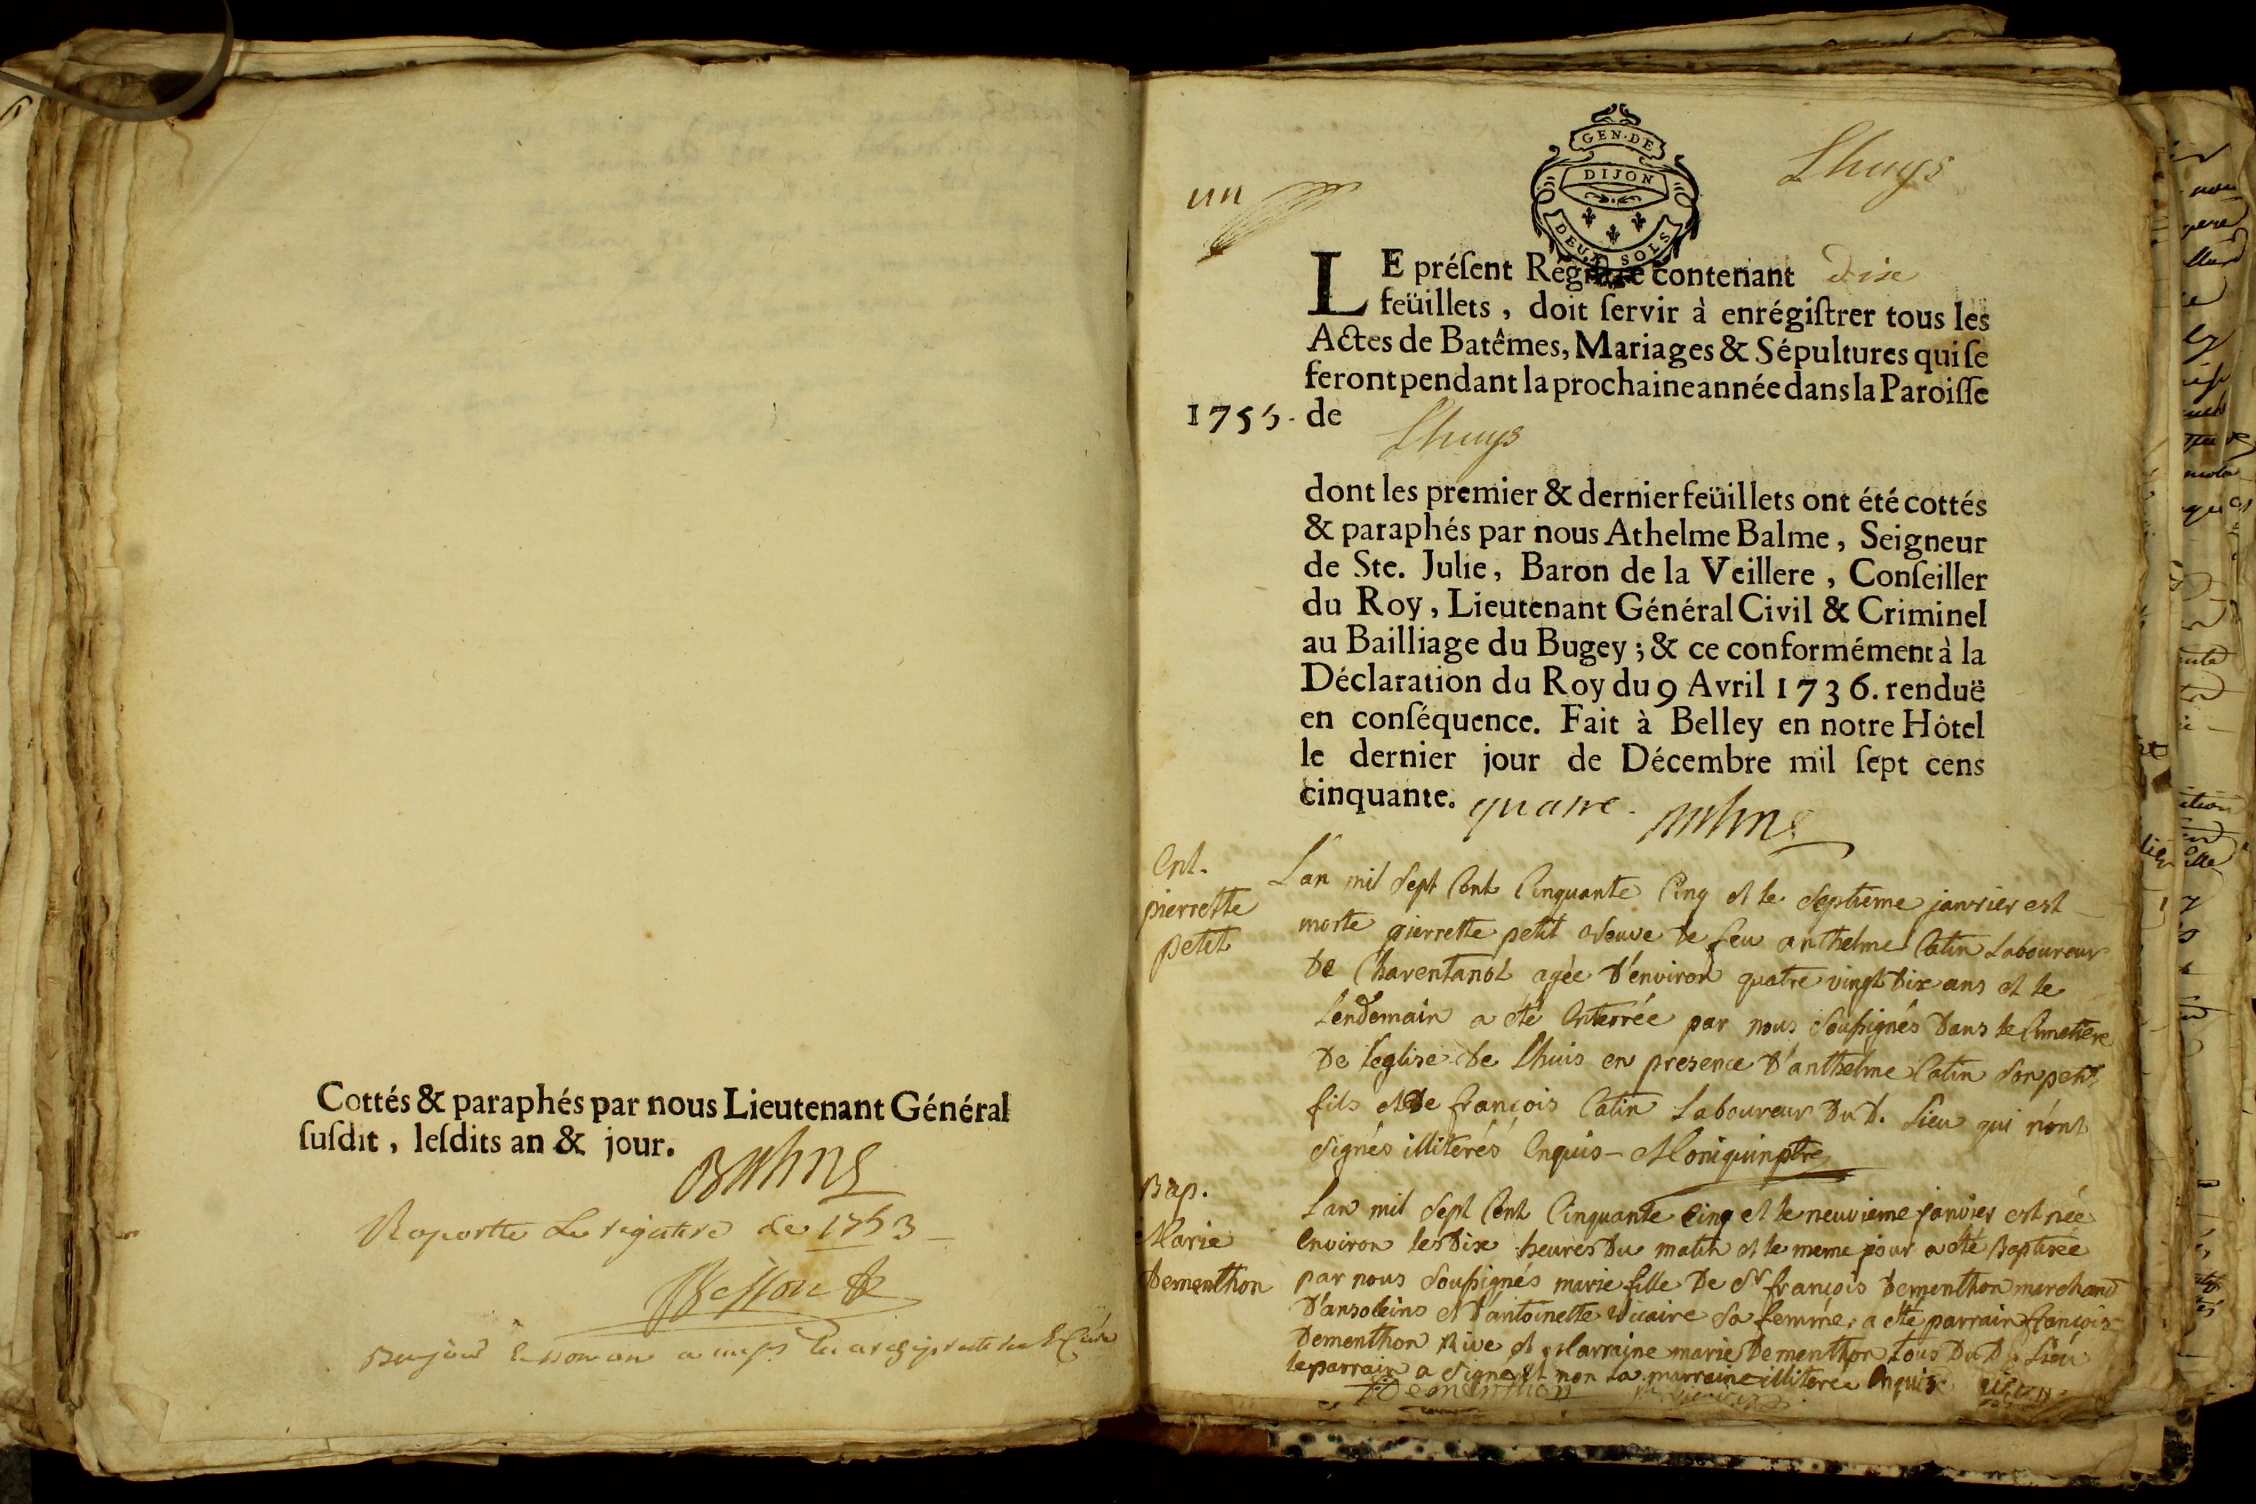 Cottés & paraphés par nous Lieutenant Général
susdit, lesdits an & jour.
Balme
Raportté Le registre de 1753
un
GEN. DE
DIJON
DEUX SOLS
Lhuys
LE présent Registre contenant dix
feüillets, doit servir à enrégistrer tous les
Actes de Batêmes, Mariages & Sépultures qui se
feront pendant la prochaine année dans la Paroisse
1755. de
Lhuys
dont les premier & dernier feüillets ont été cottés
& paraphés par nous Athelme Balme, Seigneur
de Ste. Julie, Baron de la Veillere, Conseiller
du Roy, Lieutenant Général Civil & Criminel
au Bailliage du Bugey; & ce conformément à la
Déclaration du Roy du 9 Avril 1736. renduë
en conséquence. Fait à Belley en notre Hôtel
le dernier jour de Décembre mil sept cens
cinquante. quatre. Balme
Ent.
pierrette
petit
L'an mil sept Cent Cinquante Cinq et le septieme janvier est
morte pierrette petit veuve de feu anthelme Catin Laboureur
de Charentanol agée d'environ quatre vingt dix ans et le
lendemain a été Enterrée par nous soussignés dans le Cimetiere
de l'eglise de Lhuis en presence d'anthelme Catin son petit
fils et de françois Catin Laboureur du d. Lieu qui n'ont
signés illiterés Enquis - Moniquin ptre
Bap.
Marie
dementhon
L'an mil sept Cent Cinquante Cinq et le neuvieme janvier est née
Environ les dix heures du matin et le meme jour a été Baptisée
par nous soussignés marie fille de Sr françois dementhon marchand
d'ansoleins et d'antoinette vicaire sa femme, a été parrain françois
dementhon Rive et Marraine marie dementhon tous du d. Lieu
le parrain a signé et non la marraine illiterée Enquis
Dementhon